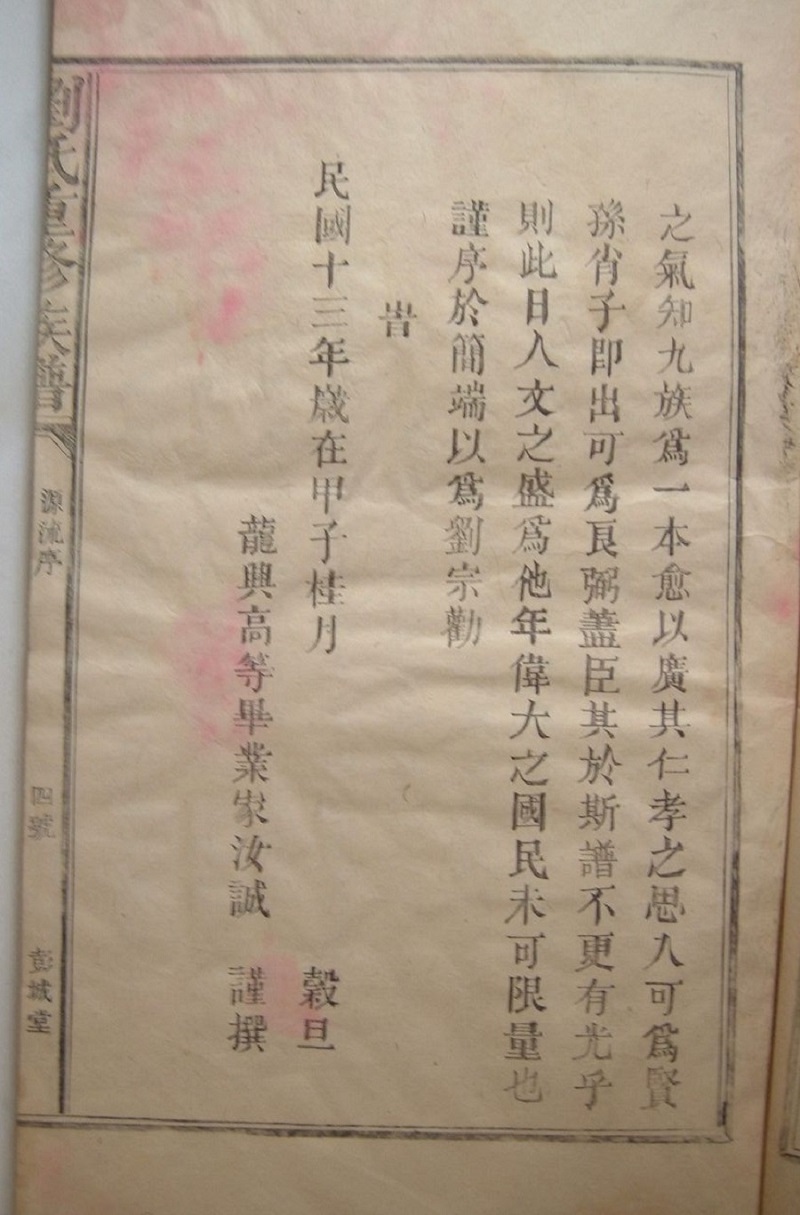 之氣知九族爲一本愈以廣其仁孝之思入可爲賢
孫肖子即出可爲良弼藎臣其於斯譜不更有光乎
則此日人文之盛爲他年偉大之國民未可限量也
謹序於簡端以爲劉宗勸
旹
民國十三年歲在甲子桂月 穀旦
龍興高等畢業家汝誠 謹撰
劉氏重修族譜
源流序
四號
彭城堂